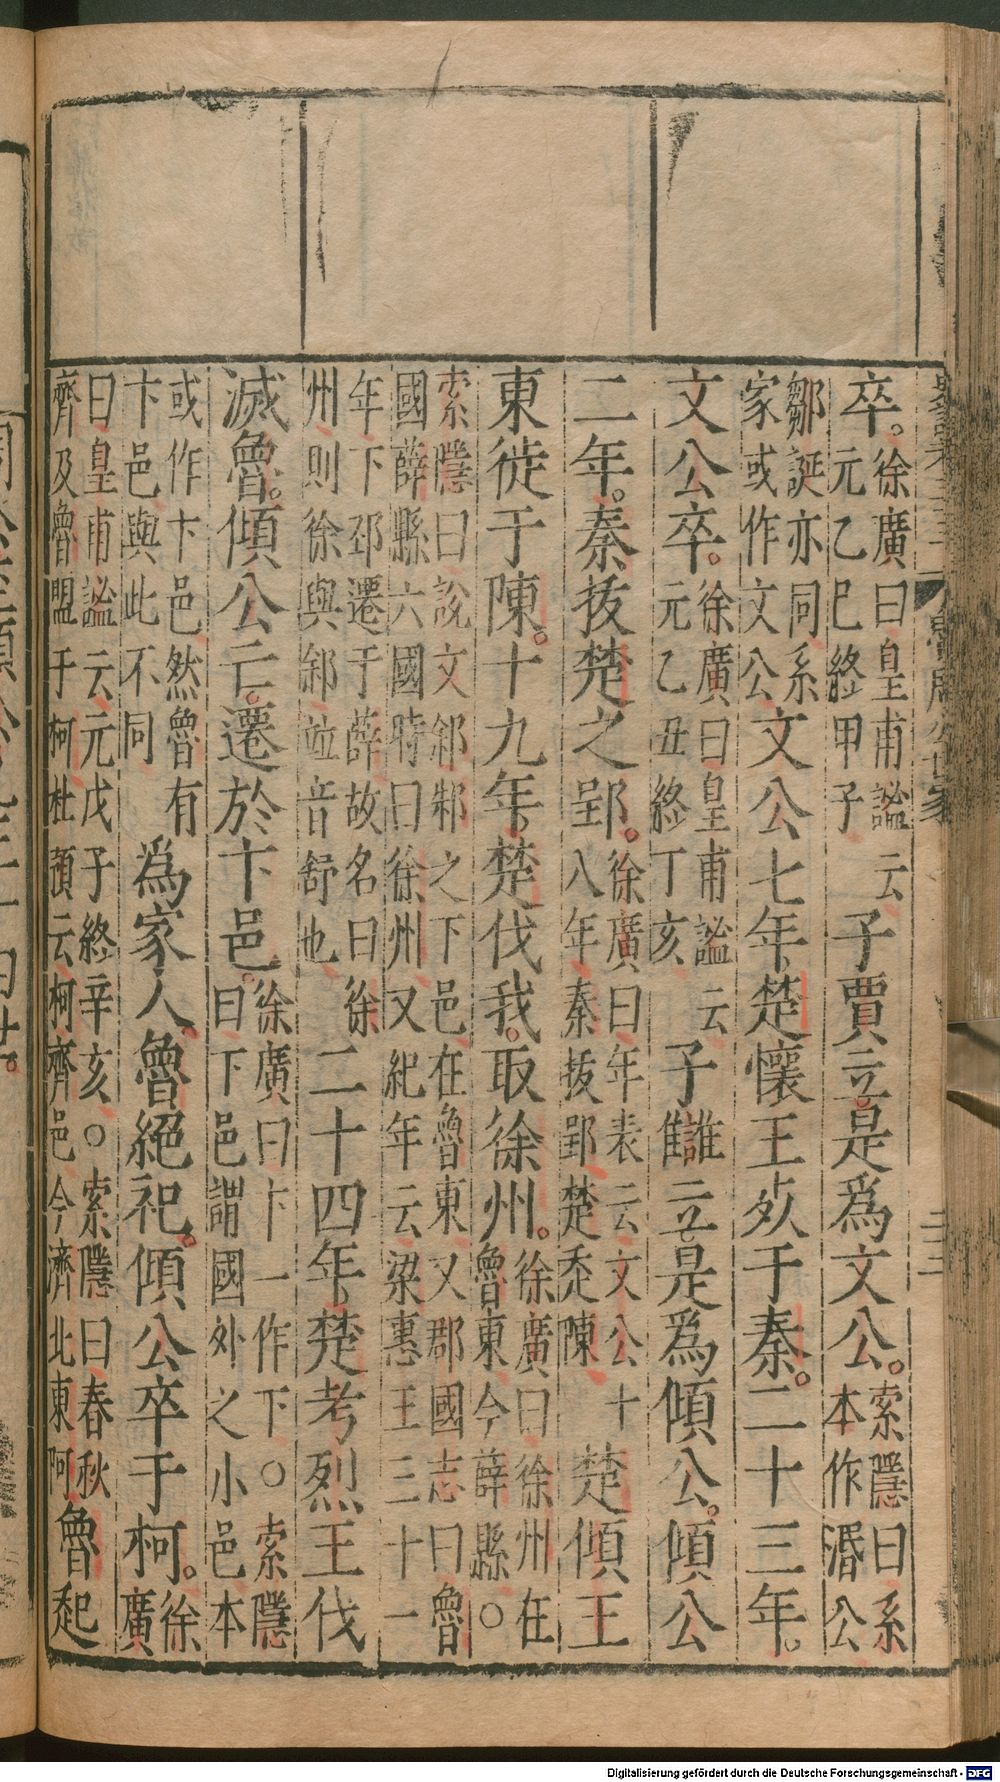 魯周公世家
卒。徐廣曰皇甫謐云元乙巳終甲子子賈立。是爲文公。索隱曰系本作湣公
鄒誕亦同系家或作文公文公七年。楚懷王死于秦。二十三年。
文公卒。徐廣曰皇甫謐云元乙丑終丁亥子讎立。是爲傾公。傾公
二年。秦拔楚之郢。徐廣曰年表云文公十八年秦拔郢楚走陳楚傾王
東徙于陳。十九年。楚伐我。取徐州。徐廣曰徐州在魯東今薛縣○
索隱曰說文䣄邾之下邑在魯東又郡國志曰魯國薛縣六國時曰徐州又紀年云梁惠王三十一
年下邳遷于薛故名曰徐州則徐與䣄竝音舒也二十四年。楚考烈王伐
滅魯。傾公亡。遷於卞邑。徐廣曰卞一作下○索隱曰下邑謂國外之小邑本
或作卞邑然魯有卞邑與此不同爲家人。魯絕祀。傾公卒于柯。徐廣
曰皇甫謐云元戊子終辛亥○索隱曰春秋齊及魯盟于柯杜預云柯齊邑今濟北東阿魯起
Digitalisierung gefördert durch die Deutsche Forschungsgemeinschaft - DFG